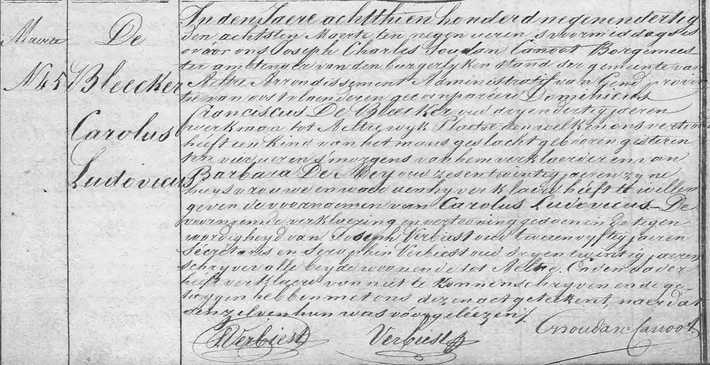 Maerte
N. 45
De
Bleecker
Carolus
Ludovicus
In den Jaere achtthien honderd negenendertig
den achtsten Maerte ten negen ueren s'voormiddags is
voor ons Joseph Charles Soudan Canoot Borgemees
ter ambtenaer van den burgerlyken stand der gemeente van
Aeltre Arrondissement Administratif van Gend, provin
tie van oostvlaenderen gecompareerd Dominicus
Franciscus De Bleecker oud dryendertig jaeren
werkman tot Aeltre wyk Plaetse den welken ons vertoont
heeft een kind van het mans geslacht gebooren gisteren
ten vier ueren s'morgens van hem verklaerder en van
Barbara De Mey oud zesentwintig jaeren zyne
huysvrouwe en waer aen hy verklaert heeft te willen
geven de voornoemen van Carolus Ludovicus De
voornoemde verklaering en vertooning gedaen in de tegen
wordigheyd van Joseph Verbiest oud tweeenvyftig jaeren
Secretaris en Seraphin Verbiest oud dryentwintig jaeren
schryver alle beyde woonende tot Aeltre. En den vader
heeft verklaert van niet te konnen schryven en de ge
tuygen hebben met ons dezen act geteekent, naer dat
den zelven hun was voorgelezen /
J Verbiest
Verbiest
C. Soudan Canoot